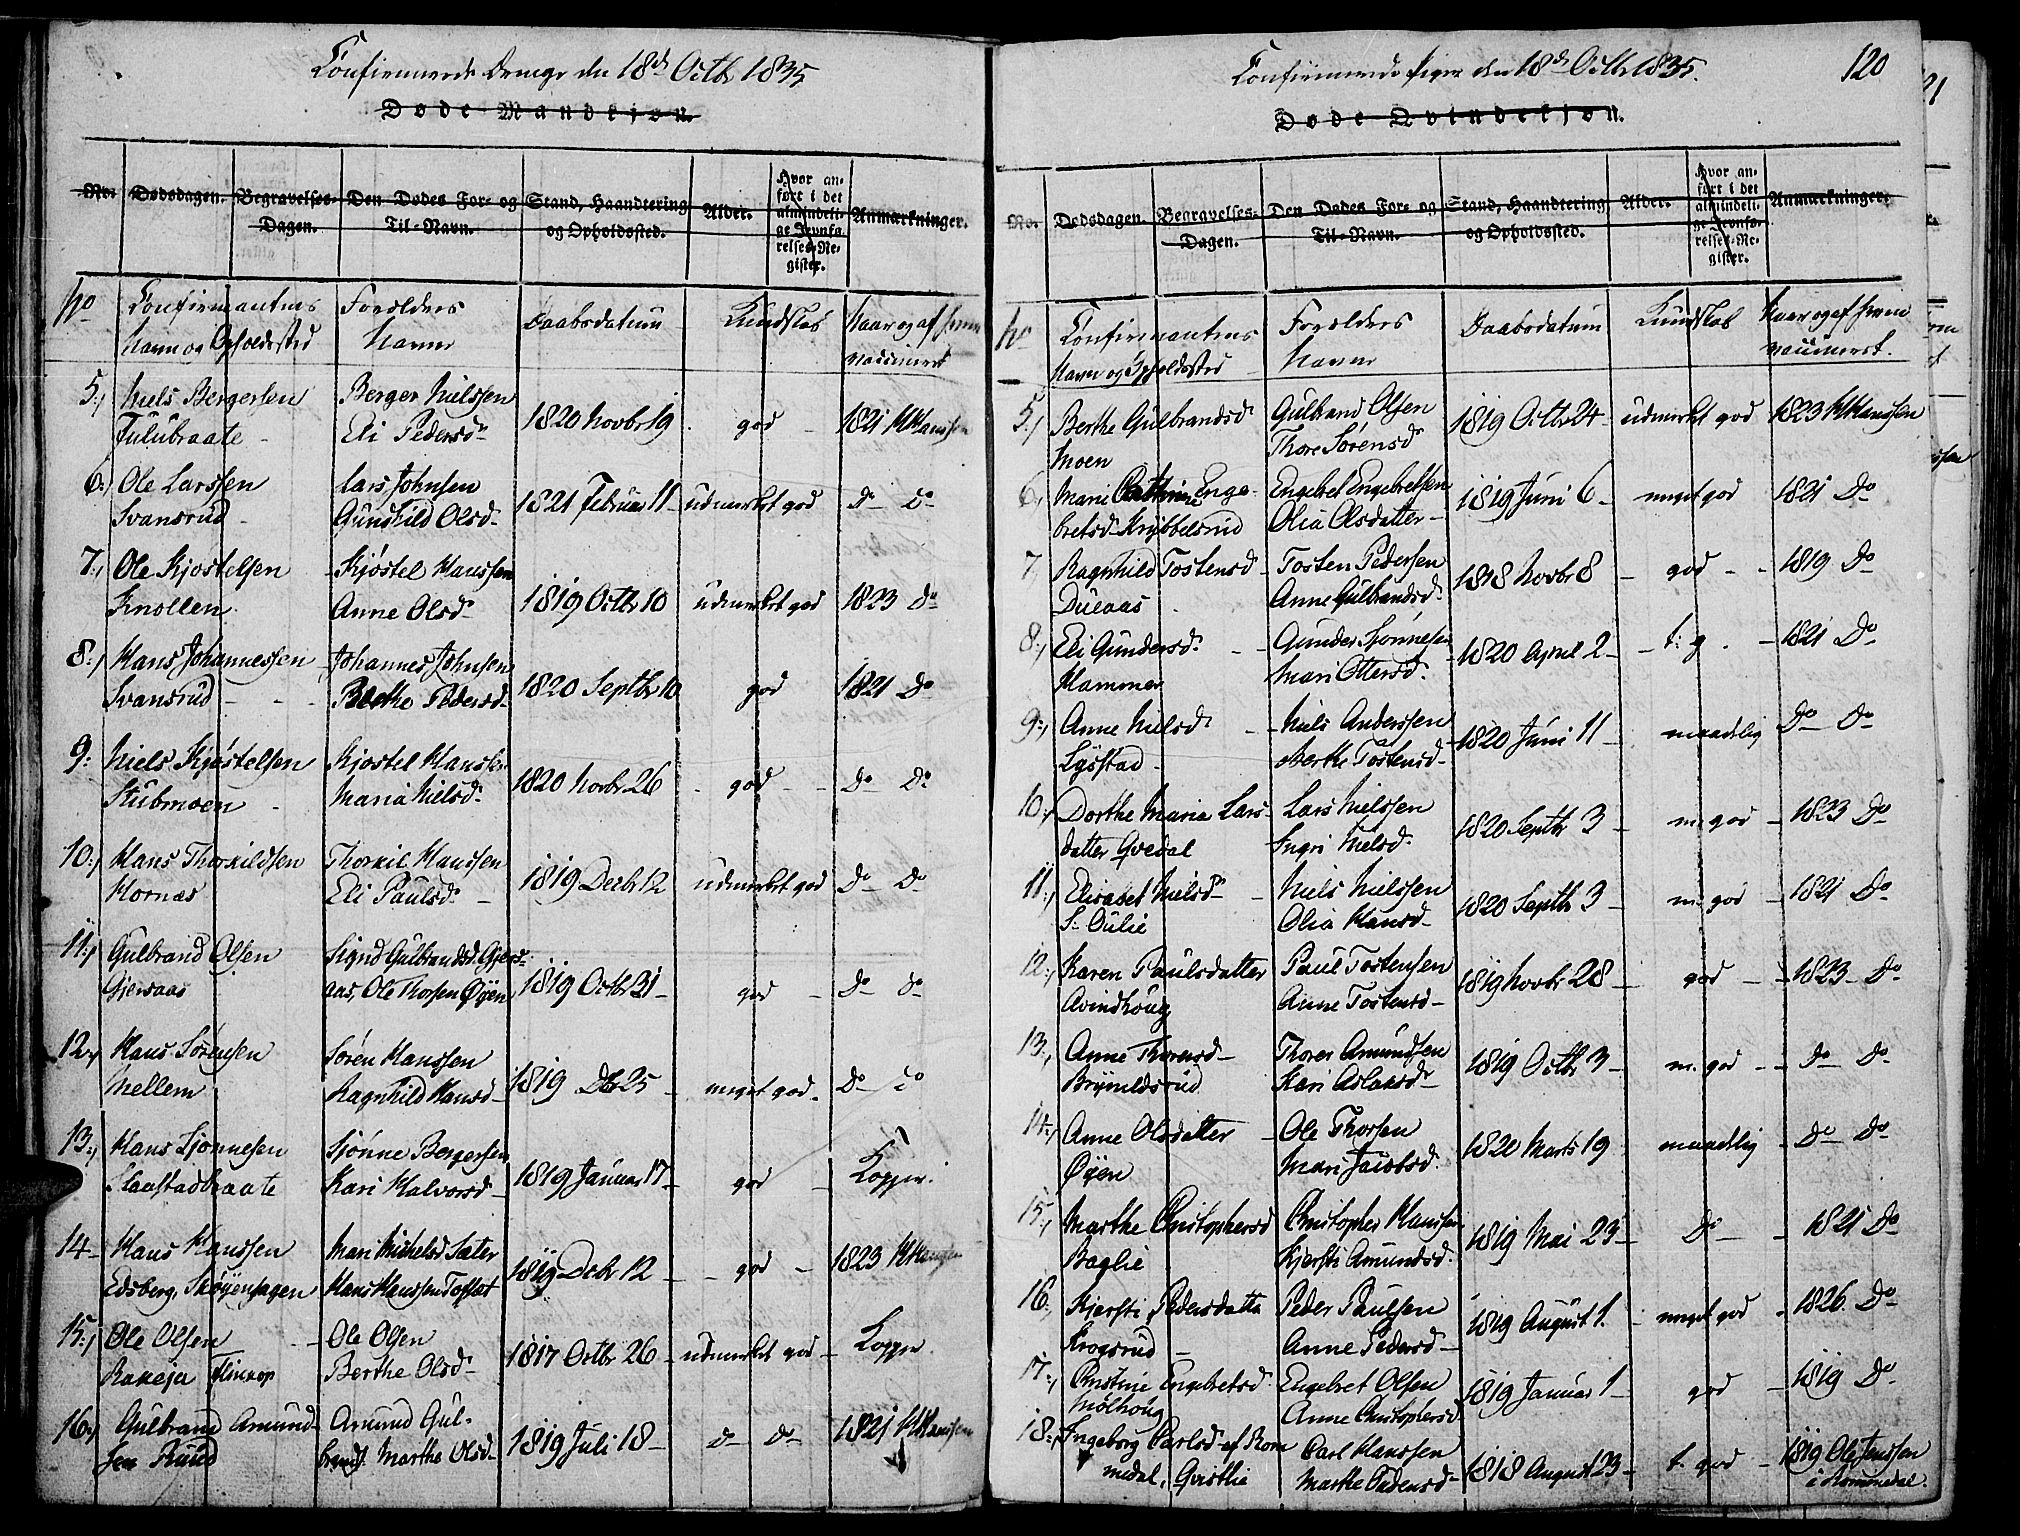 Confirmerede Drenge den 18d Octbr 1835
Døde Mandkjøn.
No. Dødsdagen. Begravelses-Dagen. Den Dødes For- og Til-Navn. Stand, Haandtering og Opholdssted. Alder. Hvor anført i det almindelige Jevnførelses-Register. Anmærkninger.
No Confirmantens Navn og Opholdssted Forældres Navne Daabsdatum Kundskab Naar og af hvem vaccineret
5, Niels Bergersen Berger Nielssen
Fulubraate Eli Pedersd. 1820 Novbr 19 god 1821 H Hanssen
6, Ole Larssen Lars Johnsen
Svansrud Gunhild Olsd. 1821 Februar 11 udmerket god Do Do
7, Ole Kjøstelsen Kjøstel Hanssen
Knollen Anne Olsd. 1819 Octbr 10 udmerket god 1823 Do
8, Hans Johannessen Johannes Johnsen
Svansrud Berthe Pedersd. 1820 Septbr 10 god 1821 Do
9, Niels Kjøstelsen Kjøstel Hanssen
Stubmoen Maria Nielsd. 1820 Novbr 26 god Do Do
10, Hans Thorkildsen Thorkil Hanssen
Hornæs Eli Paulsd. 1819 Decbr 12 udmerket god Do Do
11, Gulbrand Olsen Signe Gulbrandsd. Gjers-
Gjersaas aas, Ole Thorsen Øyen 1819 Octbr 31 god Do Do
12, Hans Sørensen Søren Hanssen
Mellem Ragnhild Hansd. 1819 Dbr 25 meget god Do Do
13, Hans Sjønnesen Sjønne Bergersen
Haastadbraate Kari Halvorsd. 1819 Januar 17 god Kopper.
14 Hans Hanssen Mari Mickelsd Sæter
Edsberg, Skøyenhagen Hans Hanssen Tofsæt 1819 Decbr 12 god 1823 H Haugen
15, Ole Olsen Ole Olsen
Rakeja Berthe Olsd. 1817 Octbr 26 udmerket god Kopper.
16, Gulbrand Amund- Amund Gul-
sen Ruud brands. Marthe Olsd. 1819 Juli 18 Do Do 1821 H Hanssen
Confirmerede Piger den 18d Octbr 1835. 120
Døde Qvindekjøn.
No. Dødsdagen. Begravelses-Dagen. Den Dødes For- og Til-Navn. Stand, Haandtering og Opholdssted. Alder. Hvor anført i det almindelige Jevnførelses-Register. Anmærkninger.
No Confirmantens Navn og Opholdssted Forældres Navne Daabsdatum Kundskab Naar og af hvem vaccineret.
5, Berthe Gulbrandsd Gulbrand Olsen
Moen Thore Sørensd. 1819 Octbr 24 udmerket god 1823 H Hanssen
6, Marie Cathrine Enge- Engebret Engebretsen
bretsd. Krybbelsrud Olia Olsdatter 1819 Juni 6 meget god 1821 Do
7, Ragnhild Tostensd Tosten Pedersen
Dueaas Anne Gulbrandsd. 1818 Novbr 8 god 1819 Do
8, Eli Gundersd. Gunder Sjønnesen
Hammer Mari Ottersd. 1820 April 2 t: g. 1821 Do
9, Anne Nielsd. Niels Anderssen
Lystad Berthe Tostensd. 1820 Juni 11 maadelig Do Do
10, Dorthe Maria Lars- Lars Nielssen
datter Qvedal Ingri Nielsd. 1820 Septbr 3 m. god 1823 Do
11, Elisabet Nielsd. Niels Nielssen
S. Oulie Olia Hansd. 1820 Septbr 3 m. god 1821 Do
12, Karen Paulsdatter Paul Tostensen
Avindhoug Anne Tostensd. 1819 Novbr 28 god 1823 Do
13, Anne Thoresd. Thorer Amundsen
Brynildsrud Kari Aslaksd. 1819 Octbr 3 m. god Do Do
14, Anne Olsdatter Ole Thorsen
Øyen Mari Jacobsd. 1820 Marts 19 maadelig Do Do
15, Marthe Christophersd Christopher Hanssen
Baglie Kjersti Amundsd. 1819 Mai 23 Do 1821 Do
16, Kjersti Pedersdatter Peder Paulsen
Krogsrud Anne Pedersd. 1819 August 1. meget god 1826 Do
17, Christine Engebretsd. Engebret Olsen
Mølhoug Anne Christophersd. 1819 Januar 1 god 1819 Do
18, Ingeborg Carlsd. af Rom Carl Hanssen
medal, Qvisthie Marthe Pedersd. 1818 August 23 t. god 1819 Ole Jenssen
i Rommedal.